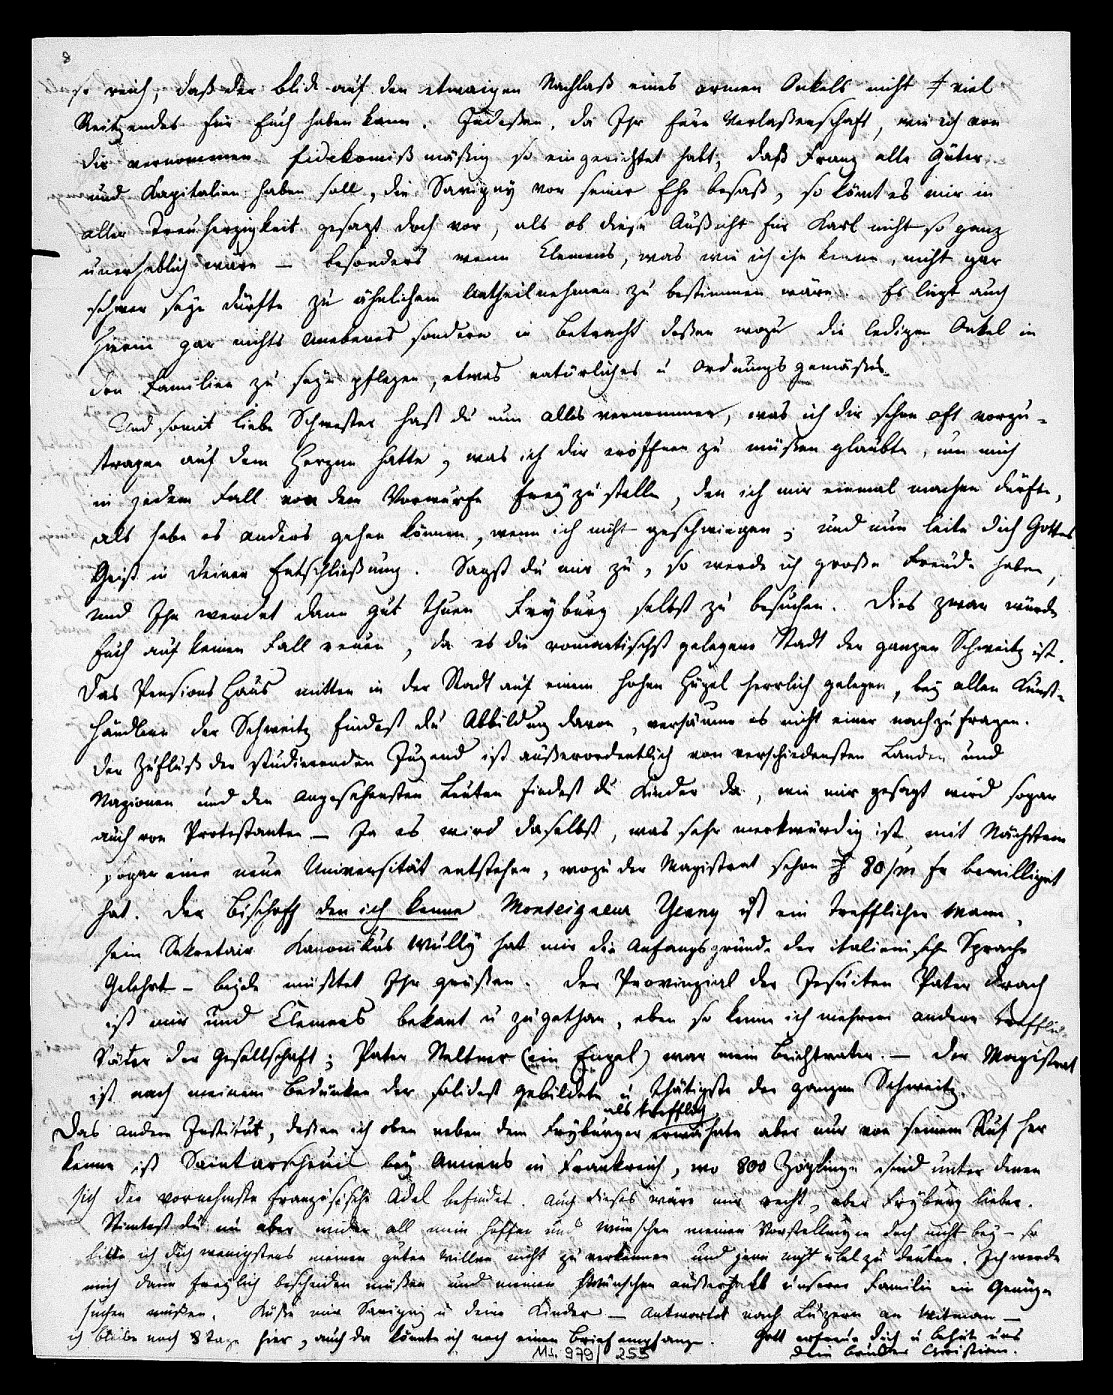 8
so reich, daß der Blick auf den etwaigen Nachlaß eines armen Onkels nicht viel
Reitzendes für Euch haben kann. Indeßen, da Ihr Eure Verlaßenschaft, wie ich von
dir vernommen fideikomiß mäßig so eingerichtet habt, daß Franz alle Güter
und Kapitalien haben soll, die Savigny vor seiner Ehe besaß, so kömt es mir in
aller Treuherzigkeit gesagt doch vor, als ob diese Außicht für Karl nicht so ganz
unerheblich wäre – besonders wenn Clemens, was wie ich ihn kenne, nicht gar
schwer seyn dürfte zu ähnlichem Antheilnehmen zu bestimmen wäre. Es liegt auch
hierin gar nichts sondern in Betracht deßen wozu die ledigen Onkel in
den Familien zu seyn pflegen, etwas natürliches u ordnungsgemäßes.
Und somit liebe Schwester hast du nun alles vernommen, was ich dir schon oft vorzu-
tragen auf dem Herzen hatte, was ich dir eröffnen zu müßen glaubte, um mich
in jedem Fall von dem Vorwurfe frey zu stellen, den ich mir einmal machen dürfte,
als habe es anders gehen können, wenn ich nicht geschwiegen; und nun leite dich Gottes
Geist in deiner Entschließung. Sagst du mir zu, so werde ich große Freude haben,
und Ihr werdet dann gut thuen Fryburg selbst zu besuchen. Dies zwar würde
Euch auf keinen Fall reuen, da es die romantischst gelegene Stadt der ganzen Schweitz ist.
Das Pensions Haus mitten in der Stadt auf einem hohen Hügel herrlich gelegen, bey allen Kunst-
händlern der Schweitz findest du Abbildung davon, versäume es nicht einer nachzufragen.
Der Zufluß der studierenden Jugend ist außerordentlich von verschiedensten Landen und
Nazionen und den angesehensten Leuten findest du Kinder da, wie mir gesagt wird sogar
auch von Protestanten – Ja es wird daselbst, was sehr merkwürdig ist, mit Nächstem
sogar eine neue Universität entstehen, wozu der Magistrat schon 80/m fr bewilliget
hat. Der Bischoff den ich kenne Monseigneur Yenny ist ein trefflicher Mann,
sein Sekretair Kanonikus Wully hat mir die Anfangsgründe der italienische Sprache
Gelehrt – beyde müßtet Ihr grüßen. Der Provinzial der Jesuiten Pater Drach
ist mir und Clemens bekant u zugethan, eben so kenne ich mehrere andere trefflich
Väter der Gesellschaft; Pater Neltner (ein Engel) war mein Beichtvater. – Der Magistrat
ist nach meinem Bedünken der solidest gebildete u thätigste der ganzen Schweitz.
als trefflig
Das andere Institut, deßen ich oben neben dem Fryburger erwähnte aber nur von seinem Ruf her
kenne ist Saint acheuil bey Amiens in Frankreich, wo 800 Zöglinge sind unter denen
sich der vornehmste französische Adel befindet. Auch dieses wäre mir recht, aber Fryburg lieber.
Stimtest du nun aber wider all mein hoffen und wünschen meinen Vorstellungen doch nicht bey – so
bitte ich dich wenigstens meinen guten Willen nicht zu verkennen und jenen nicht übel zu deuten. Ich werde
mich dann freylich bescheiden müßen und meinen Wünschen außerhalb unserer Familie ein Genüge
suchen müßen. Küße mir Savigny u deine Kinder – Antwortet nach Luzern an Witman –
ich bleibe noch 8 Tage hier, auch da könnte ich noch einen Brief empfangen. Gott erfreue dich u behüte uns
dein bruder Christian.
Ms. 979/ 255